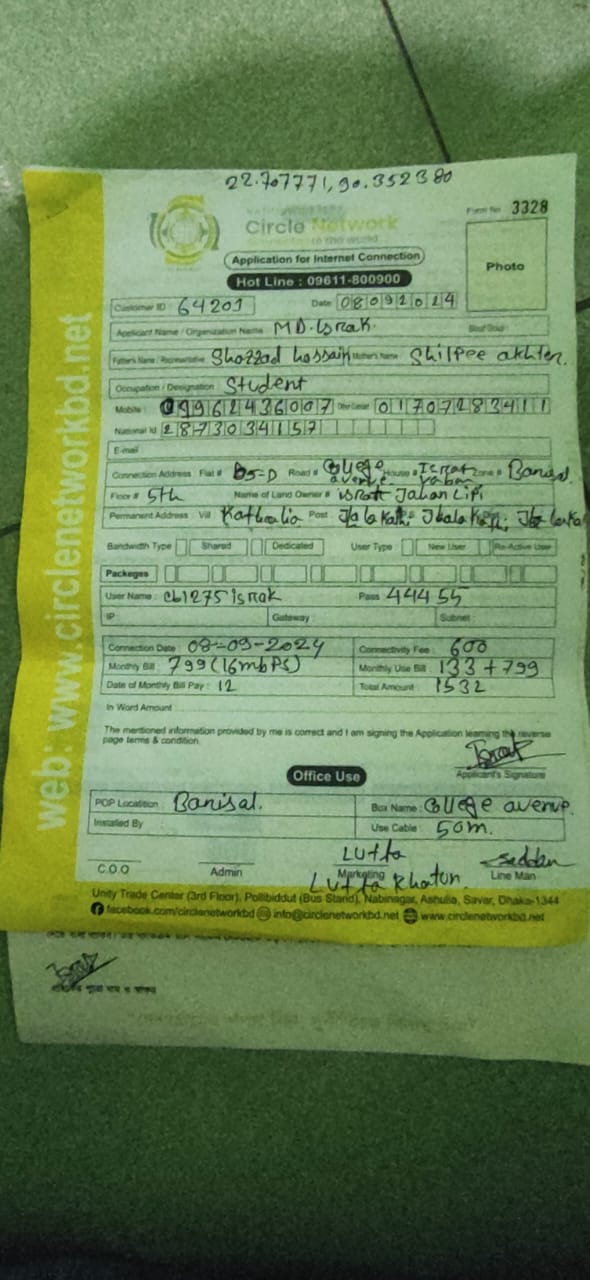 22.707771,90.352380
Circle Network
to the world
Form No 3328
Application for Internet Connection
Hot Line : 09611-800900
Photo
Customer ID : 64201 Date : 08092024
Applicant Name / Organization Name MD. Israk. Blood Group :
Father's Name / Representative Shazzad hossain Mother's Name Shilpee akhter.
Occupation / Designation Student
Mobile : 09962436007 Other Contact 01707283411
National Id 2873034157
E-mail
Connection Address Flat # 5-D Road # College avenue House # Israt Zone # Barisal
Floor # 5th Name of Land Owner # israt Jahan Lipi
Permanent Address Vill Post
Bandwidth Type Shared Dedicated User Type New User Re-Active User
Packeges
User Name : cb1275israk Pass 44455
IP Gateway Subnet
Connection Date 08-09-2024 Connectivity Fee : 600
Monthly Bill : 799 (16mbPS) Monthly Use Bill : 133 + 799
Date of Monthly Bill Pay : 12 Total Amount : 1532
In Word Amount
The mentioned information provided by me is correct and I am signing the Application learning the reverse
page terms & condition.
Israk
Applicant's Signature
Office Use
POP Location Barisal. Box Name : College avenue.
Installed By Use Cable : 50m.
Lutfa
C.O.O Admin Marketing Line Man
Lutfa Khatun.
Unity Trade Center (3rd Floor), Pollibiddut (Bus Stand), Nabinagar, Ashulia, Savar, Dhaka-1344
facebook.com/circlenetworkbd info@circlenetworkbd.net www.circlenetworkbd.net
web: www.circlenetworkbd.net
Israk